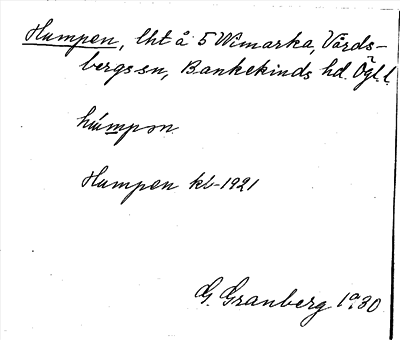 Humpen, lht å S Wimarka, Vårds-
bergs sn, Bankekinds hd. Ögl. l.
húmpon
Humpen kb-1921
G. Granberg 1930